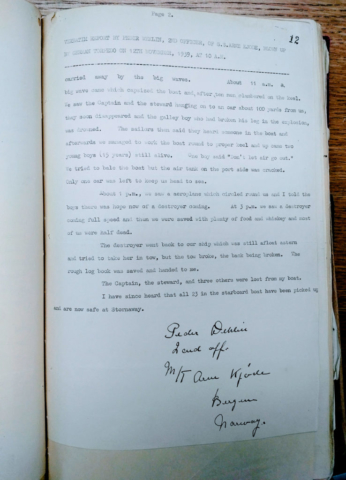 Page 2.
12
carried away by the big waves. About 11 a.m. a
big wave came which capsized the boat and after you and clambered on the keel.
We saw the Captain and the steward hanging on to an oar about 100 yards from us,
they soon disappeared and the galley boy was
was drowned. The sailors then said they heard someone in the boat and
afterwards we managed to such the boat round to proper keel and we saw two
young boys (15 years) still alive. One boy said "Don't let air go out."
We tried to bale the boat but the air tank on the port side was crushed.
Only one oar was left to keep us head to sea.
About 1 p.m., we saw a aeroplane which circled round us and I told the
boys there was hope now of a destroyer coming. At 3 p.m. we saw a destroyer
coming full speed and then we were saved with plenty of food and whiskey and most
of us were half dead.
The destroyer went back to our ship which was still afloat astern
and tried to take her in tow, but the tow broke, the back being broken. The
rough log book was saved and handed to me.
The Captain, the steward, and three others were lost from my boat.
I have since heard that all 23 in the starboard boat have been picked up
and are now safe at Stornoway.
Peder
2end off.
M/T Arne Kjöde
Bergen
Norway.